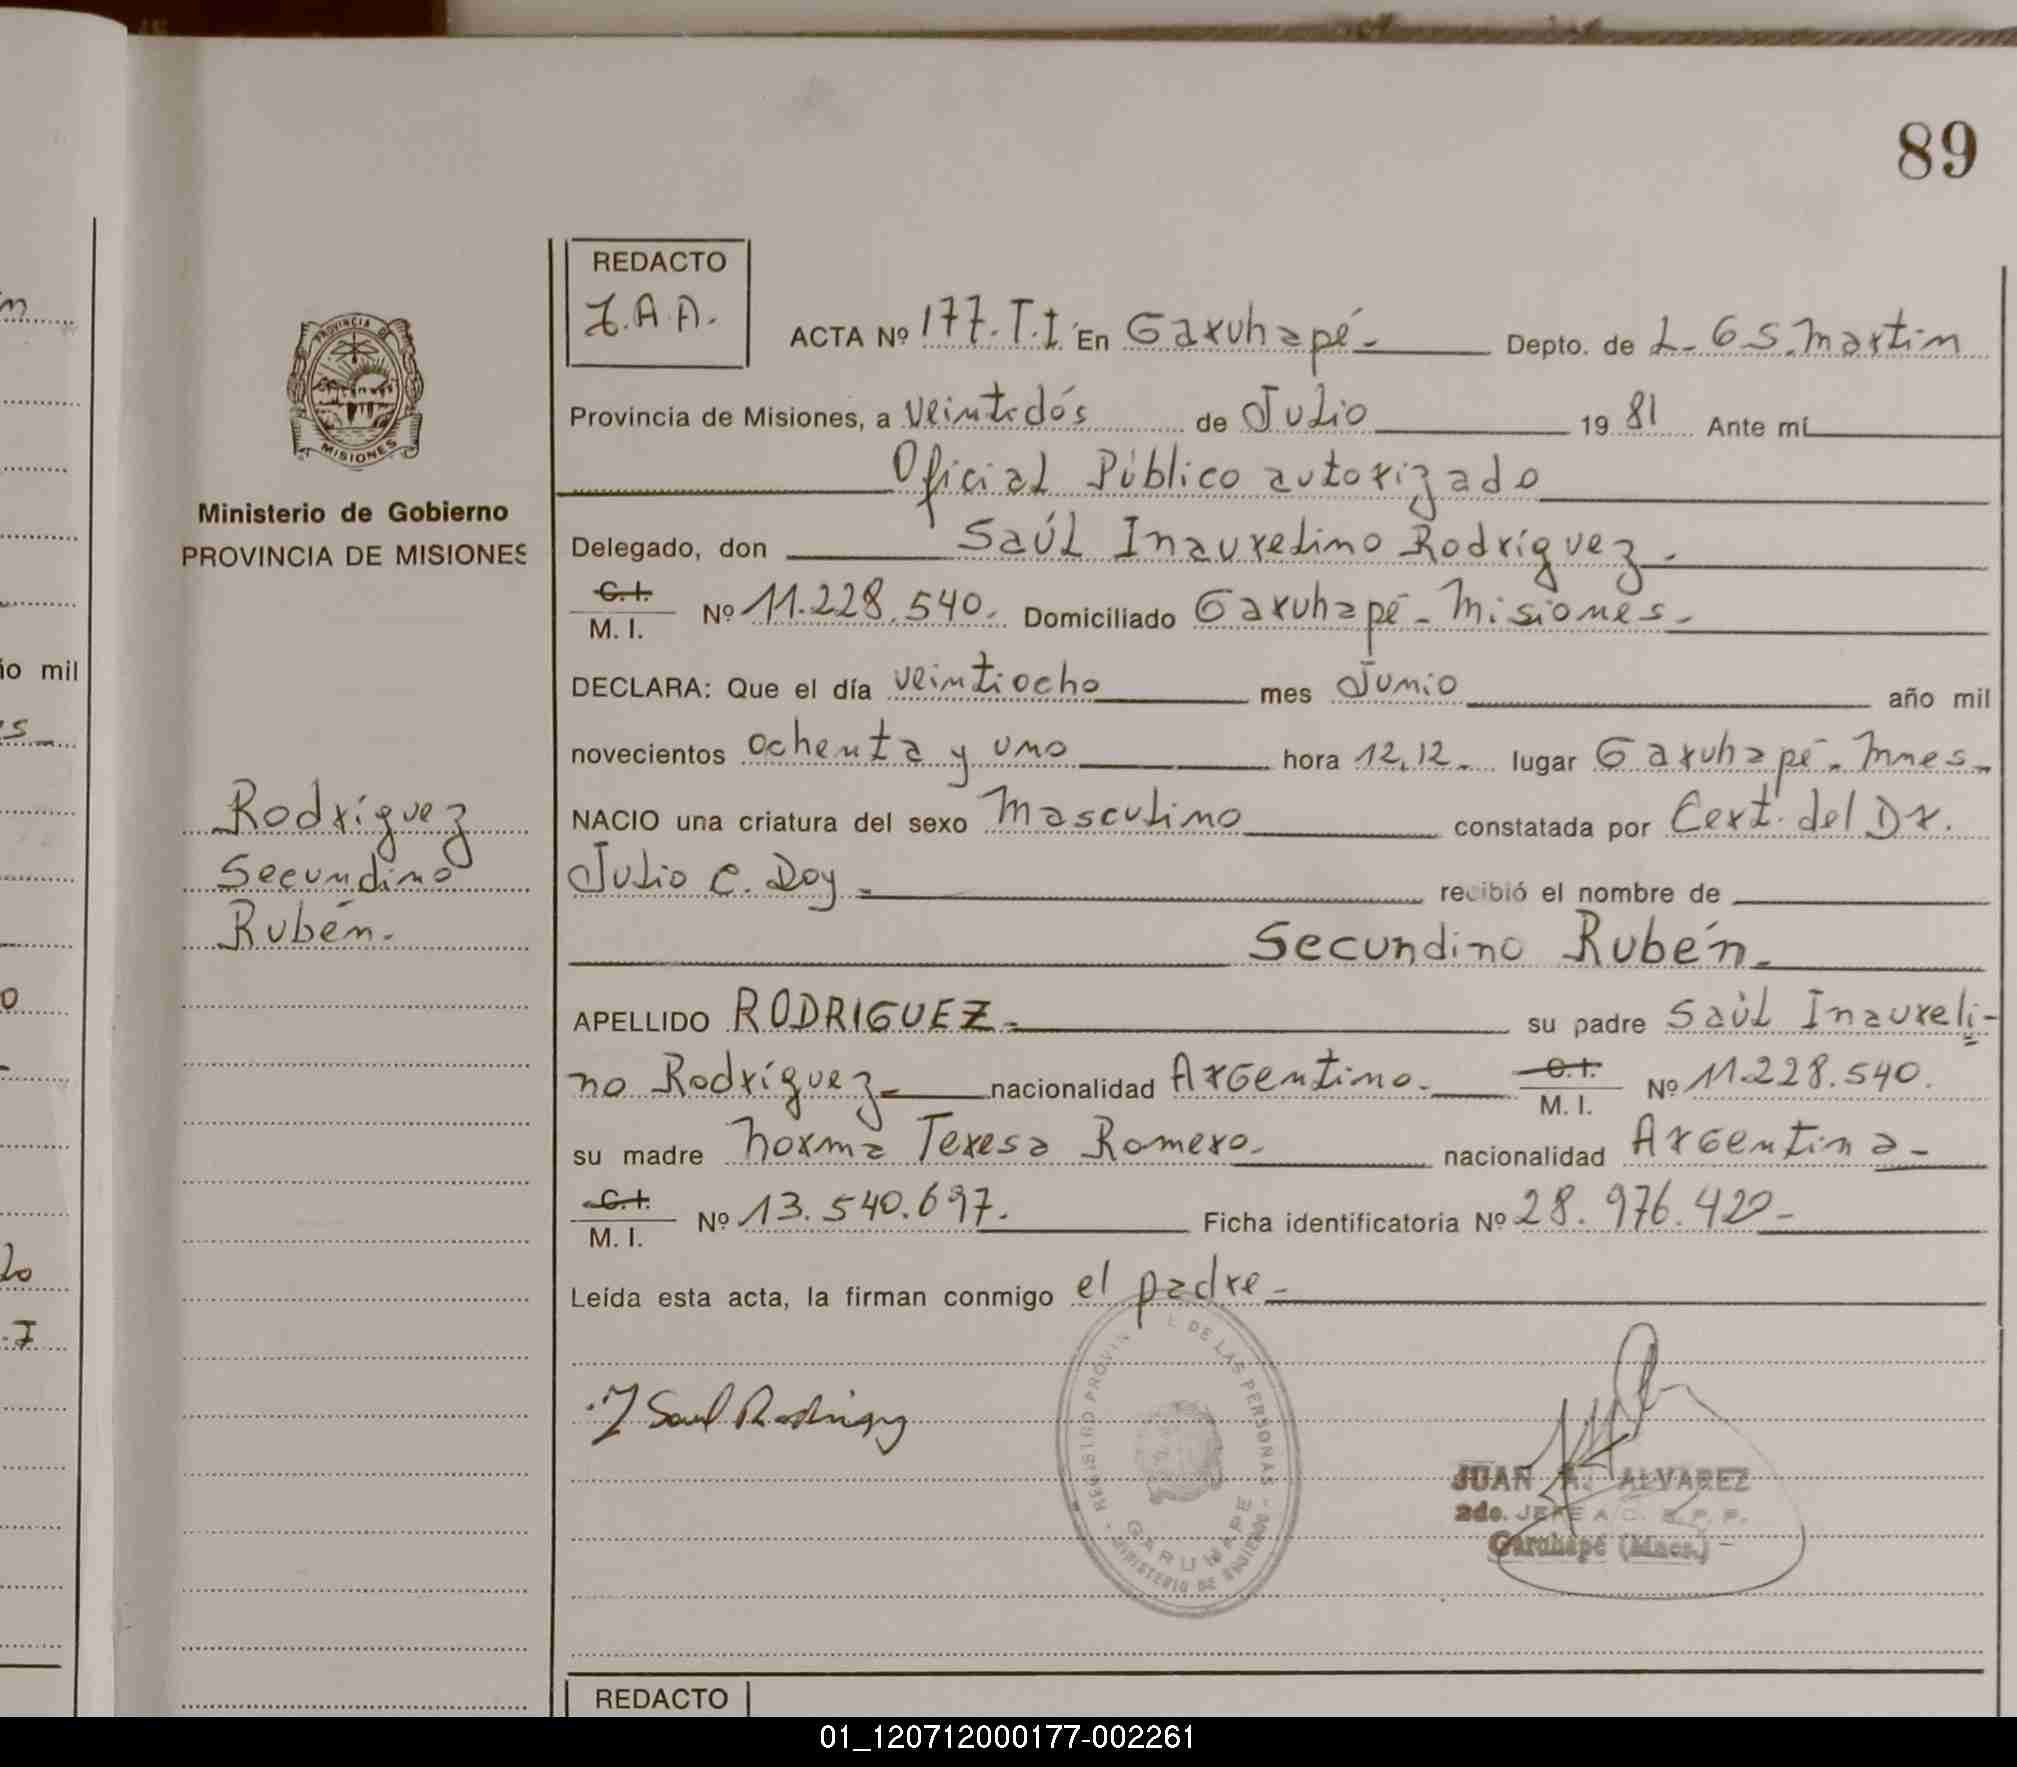 89
REDACTO
J.A.A.
ACTA Nº 177.T.I. En Garuhapé- Depto. de L. G S. Martin
Provincia de Misiones, a veintidós de Julio 19 81 Ante mí
Oficial Público autorizado
Delegado, don Saúl Inaurelino Rodríguez.
C.I. M. I. Nº 11.228.540. Domiciliado Garuhapé - Misiones.
DECLARA: Que el día veintiocho mes Junio año mil
novecientos ochenta y uno hora 12,12. lugar Garuhapé - Mnes.
NACIO una criatura del sexo Masculino constatada por Cert. del Dr.
Julio C. Doy recibió el nombre de
Secundino Rubén.
APELLIDO RODRIGUEZ. su padre Saúl Inaureli-
no Rodríguez nacionalidad Argentino. C.I. M. I. Nº 11.228.540.
su madre Norma Teresa Romero. nacionalidad Argentina-
C.I. M. I. Nº 13.540.697. Ficha identificatoria Nº 28.976.420-
Leída esta acta, la firman conmigo el padre-
PROVINCIA DE
MISIONES
Ministerio de Gobierno
PROVINCIA DE MISIONES
Rodríguez
Secundino
Rubén.
I Saul Rodriguez
REGISTRO PROVINCIAL DE LAS PERSONAS
GARUHAPE
MINISTERIO DE GOBIERNO
JUAN A. ALVAREZ
2do. JEFE
Garuhapé (Mnes.)
REDACTO
n
ño mil
s
o
lo
.7
01_120712000177-002261